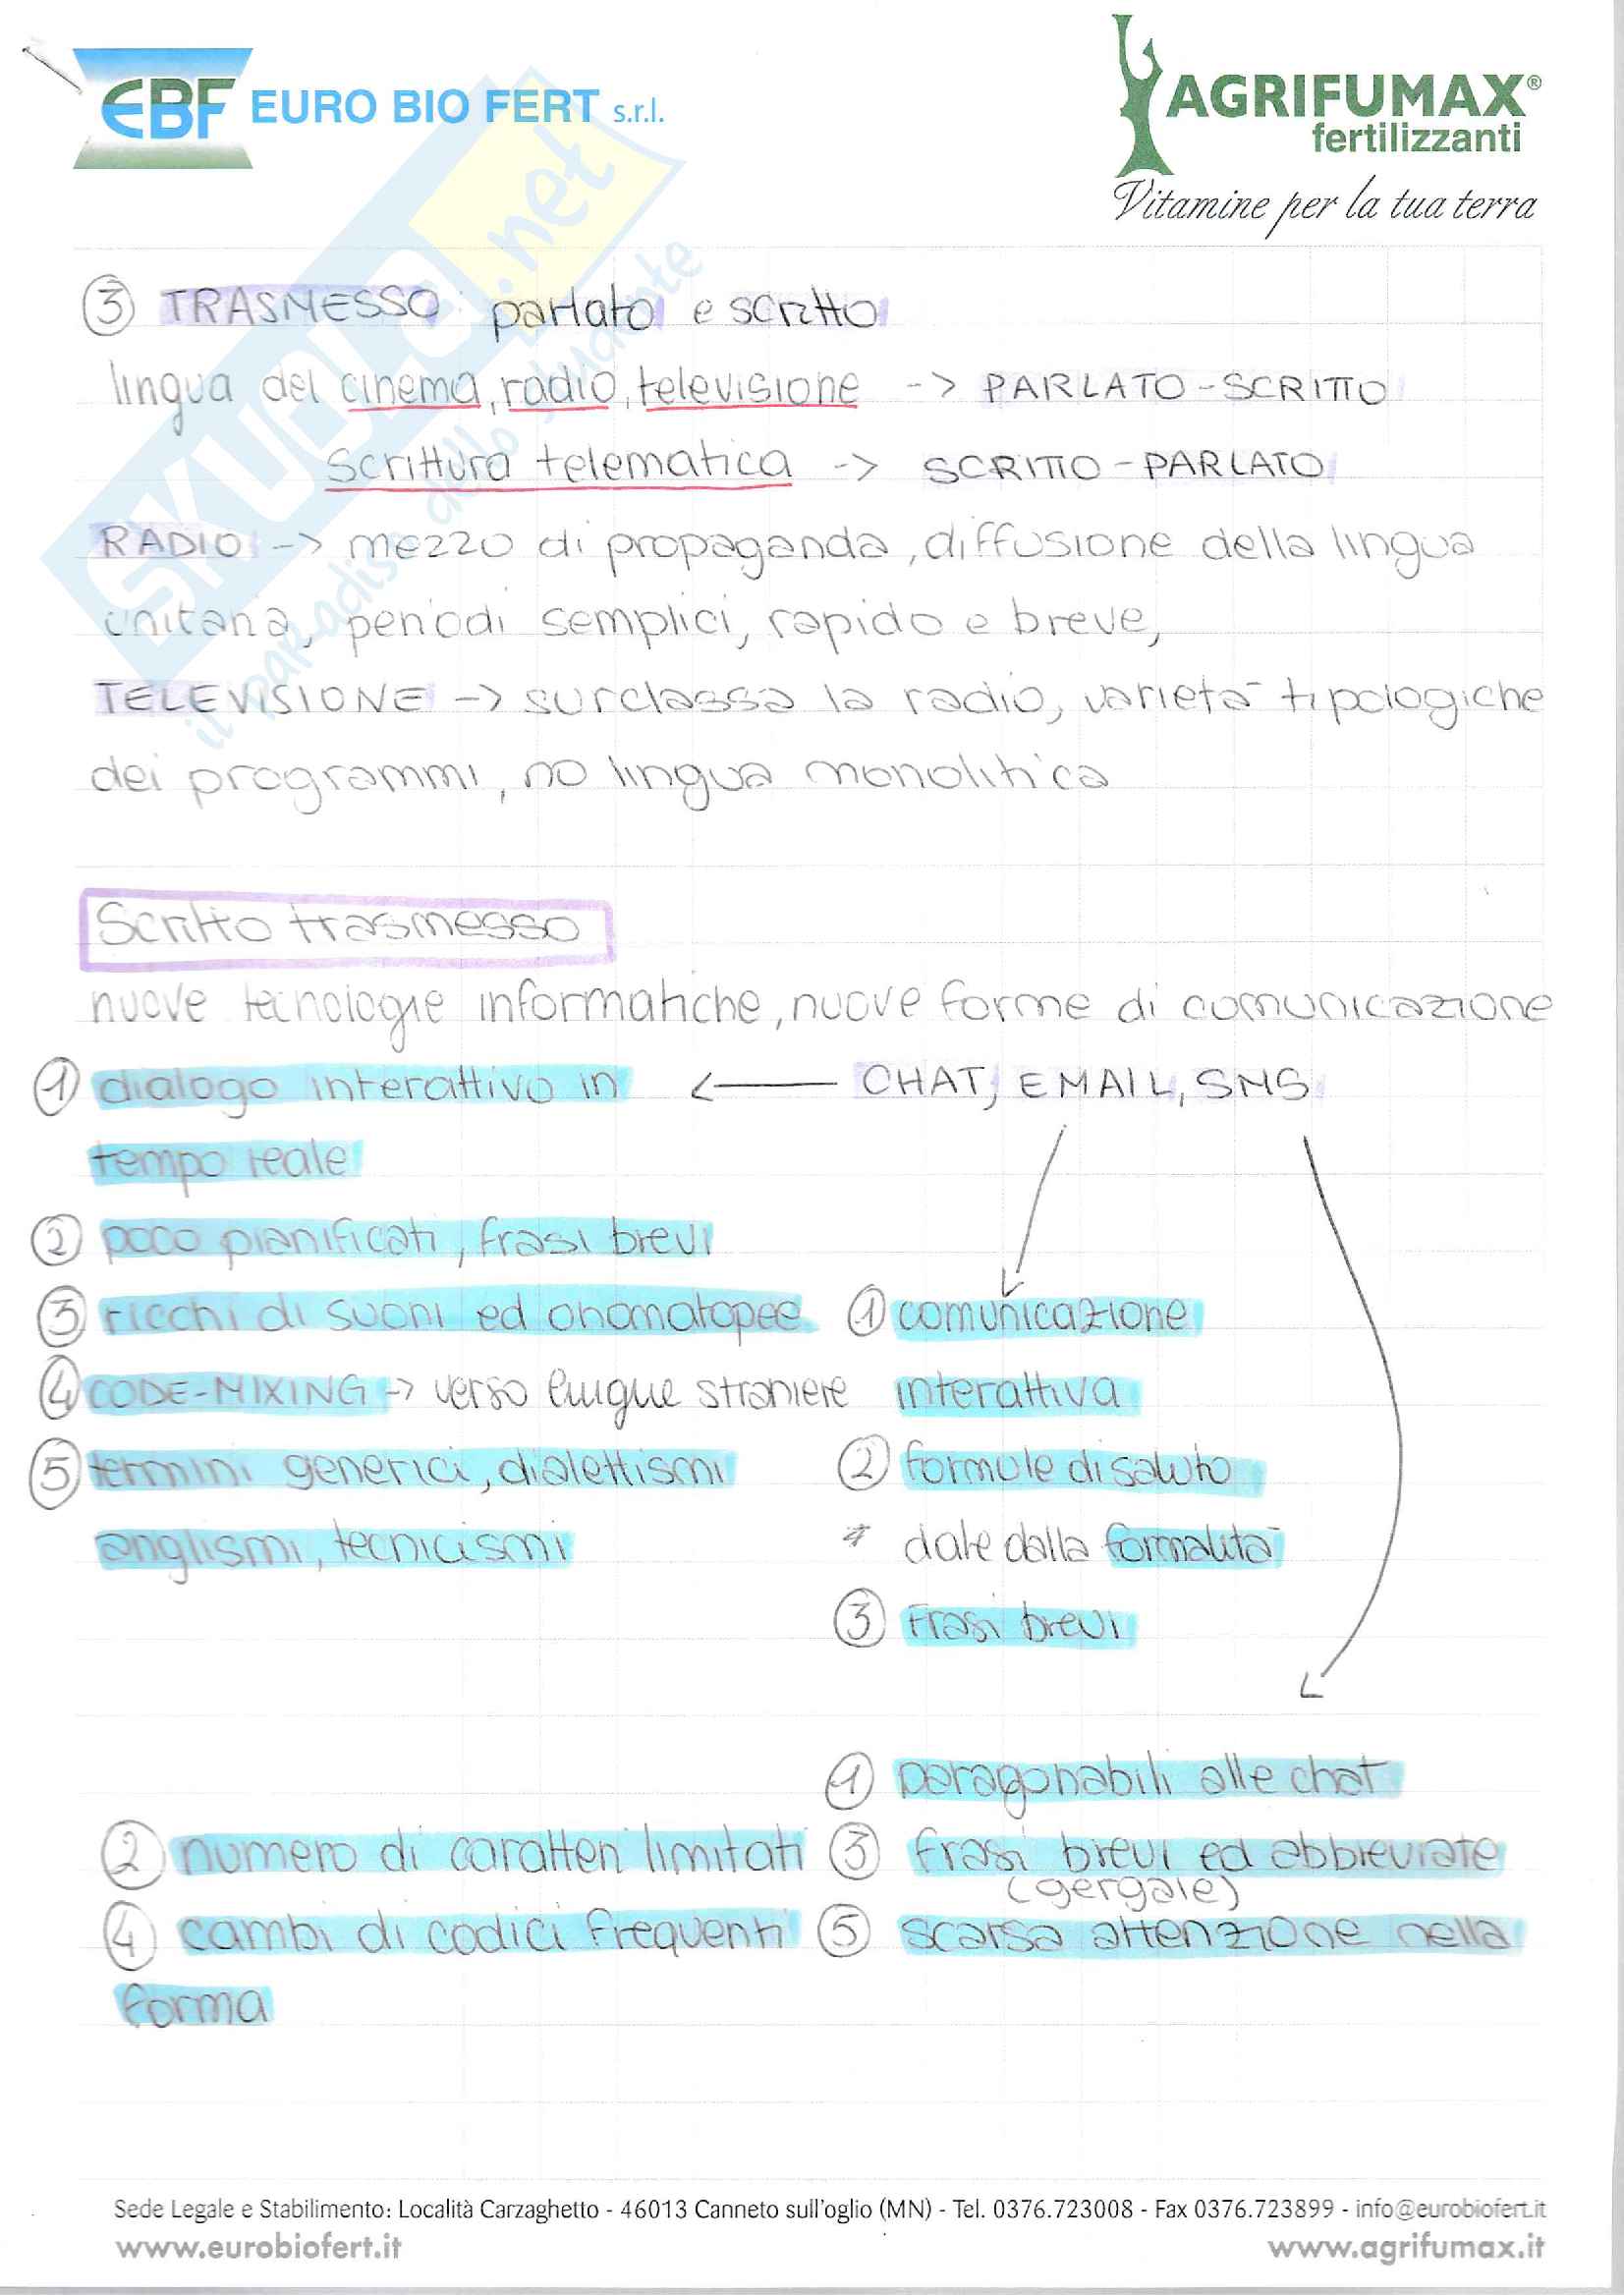 EBF EURO BIO FERT s.r.l.
AGRIFUMAX®
fertilizzanti
Vitamine per la tua terra
SKUOLA.net
il paradiso dello studente
3 TRASMESSO: parlato e scritto
lingua del cinema, radio, televisione -> PARLATO-SCRITTO
scrittura telematica -> SCRITTO-PARLATO
RADIO -> mezzo di propaganda, diffusione della lingua
unitaria, periodi semplici, rapido e breve,
TELEVISIONE -> surclassa la radio, varietà tipologiche
dei programmi, no lingua monolitica
Scritto trasmesso
nuove tecnologie informatiche, nuove forme di comunicazione
1 dialogo interattivo in <— CHAT, EMAIL, SMS
tempo reale
2 poco pianificati, frasi brevi
3 ricchi di suoni ed onomatopee
4 CODE-MIXING -> verso lingue straniere
5 termini generici, dialettismi
anglismi, tecnicismi
1 comunicazione
interattiva
2 formule di saluto
* date dalla formalità
3 Frasi brevi
1 paragonabili alle chat
2 numero di caratteri limitati 3 frasi brevi ed abbreviate
(gergale)
4 cambi di codici frequenti 5 scarsa attenzione nella
forma
Sede Legale e Stabilimento: Località Carzaghetto - 46013 Canneto sull'oglio (MN) - Tel. 0376.723008 - Fax 0376.723899 - info@eurobiofert.it
www.eurobiofert.it www.agrifumax.it